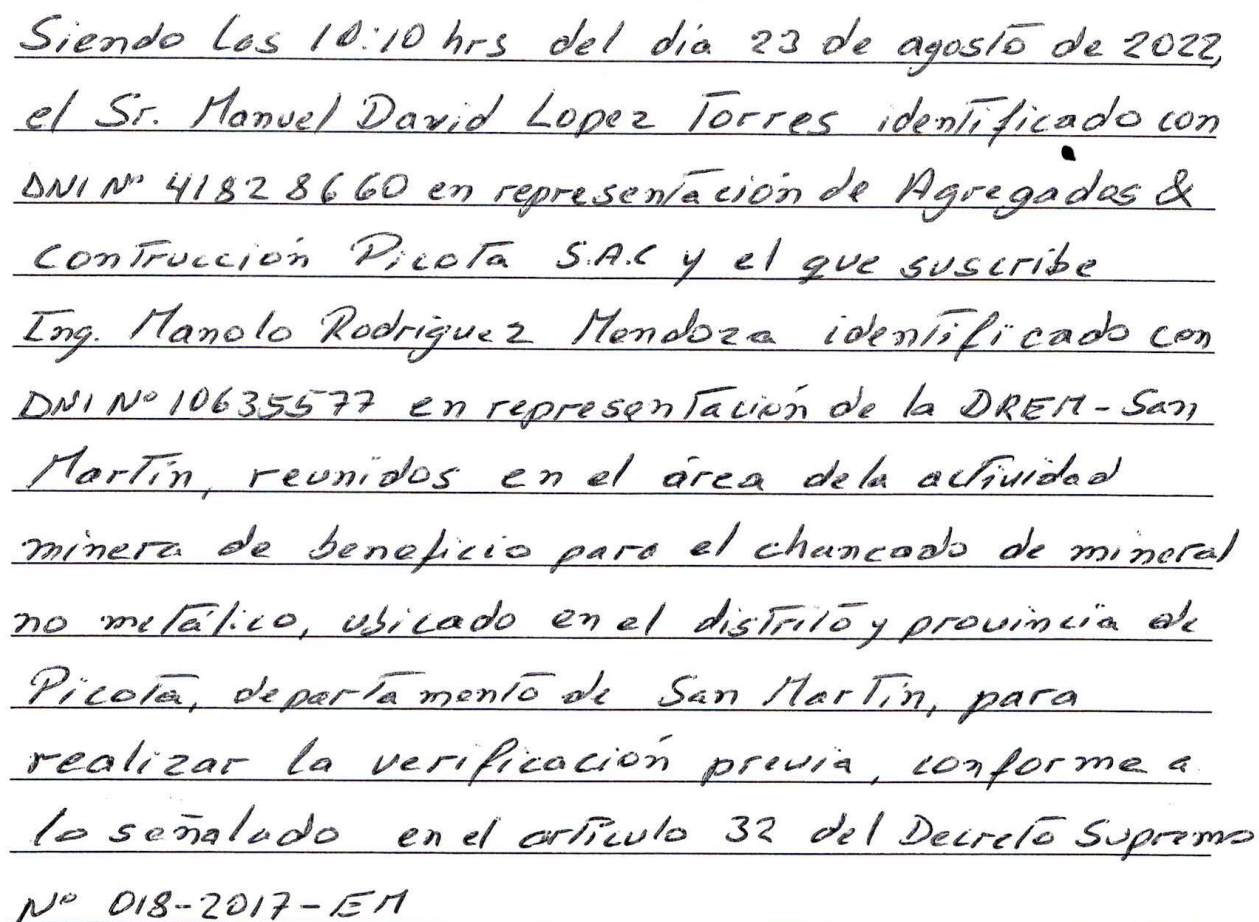 Siendo las 10:10 hrs del día 23 de agosto de 2022,
el Sr. Manuel David Lopez Torres identificado con
DNI Nº 41828660 en representación de Agregados &
Contrucción Picota S.A.C y el que suscribe
Ing. Manolo Rodriguez Mendoza identificado con
DNI Nº 10635577 en representación de la DREM-San
Martín, reunidos en el área dela actividad
minera de beneficio para el chancado de mineral
no metálico, ubicado en el distrito y provincia de
Picota, departamento de San Martín, para
realizar la verificación previa, conforme a
lo señalado en el artículo 32 del Decreto Supremo
Nº 018-2017-EM